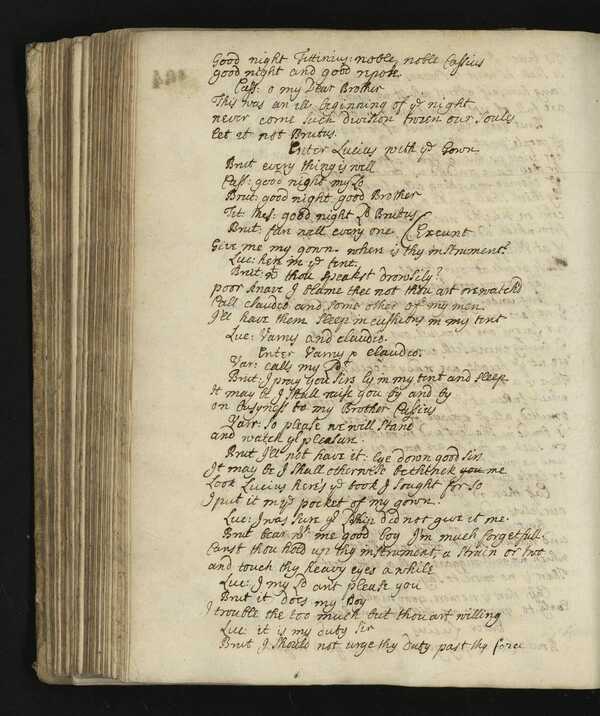 Good night Titinius: noble, noble Cassius
good night and good repose.
Cass: o my Dear Brother
This was an ill beginning of ye night
never come such division tween our souls
let it not Brutus.
Enter Lucius with ye Gown
Brut every thing is well
Cass: good night my Lo
Brut: good night good Brother
Tit Mes: good night Ld Brutus
Brut: farwall every one. Exeunt
Give me my gown. where is thy instrument?
Luc: here in ye tent.
Brut: wt thou speakst drowsily?
poor knave I blame thee not thou art orewatchd
Call claudio and some other of my men
I'll have them sleep in cushions in my tent
Luc: Varrus and claudio.
Enter Varrus & claudio.
Var: calls my Ld
Brut: I pray you sirs ly in my tent and sleep
It may be I shall raise you by and by
on busyness to my Brother Cassius
Varr: So please we will stand
and watch yr pleasure.
Brut I'll not have it: lye down good sirs
It may be I shall otherwise bethinck me
Look Lucius here's ye book I sought for so
I put it in ye pocket of my gown.
Luc: I was sure yr Lship did not give it me.
Brut bear wt me good boy I'm much forgetfull.
Canst thou hold up thy instrument, a strain or two
and touch thy heavy eyes a while
Luc: I my Ld ant please you
Brut it does my Boy
I trouble the too much but thou art willing
Luc it is my duty Sir
Brut I should not urge thy duty past thy force